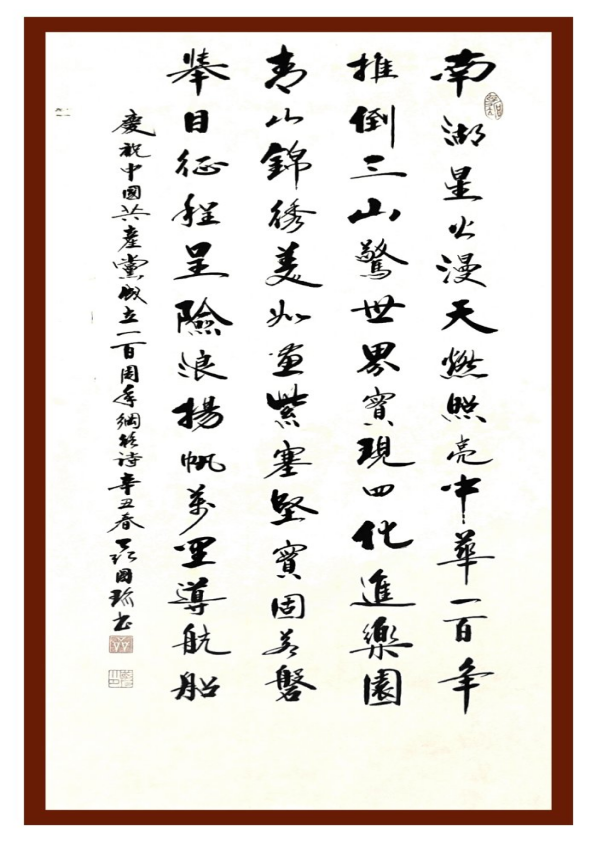 南湖星火漫天燃照亮中華一百年
推倒三山驚世界實現四化進樂園
青山錦綉美如畫紫塞堅實固若磐
舉目征程呈險浪揚帆萬里導航船
慶祝中國共產黨成立一百周年 詩辛丑春 國 書